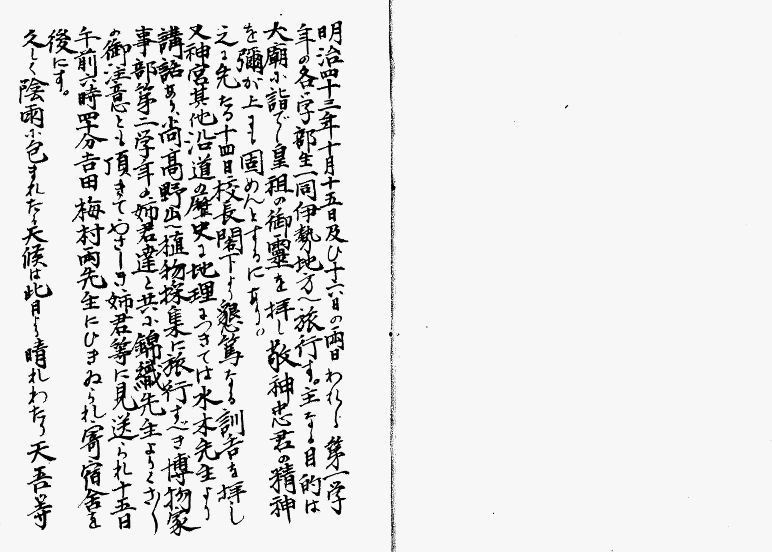 明治四十三年十月十五日及び十六日の両日われら第一学
年の各学部生一同伊勢地方へ旅行す。主なる目的は
大廟に詣でし皇祖の御霊を拝し敬神忠君の精神
を彌が上にも固めんとするにあり。
之に先だち十四日校長閣下より懇篤なる訓告を拝し
又神宮其他沿道の歴史に地理につきては水木先生より
講話あり、尚高野山へ植物採集に旅行すべき博物家
事部第二学年の姉君達と共に錦織先生よりくさ〲
の御注意をも頂きてやさしき姉君等に見送られ十五日
午前六時四十分吉田梅村両先生にひきゐられ寄宿舎を
後にす。
久しく陰雨に包まれたる天候は此月より晴れわたり天吾等